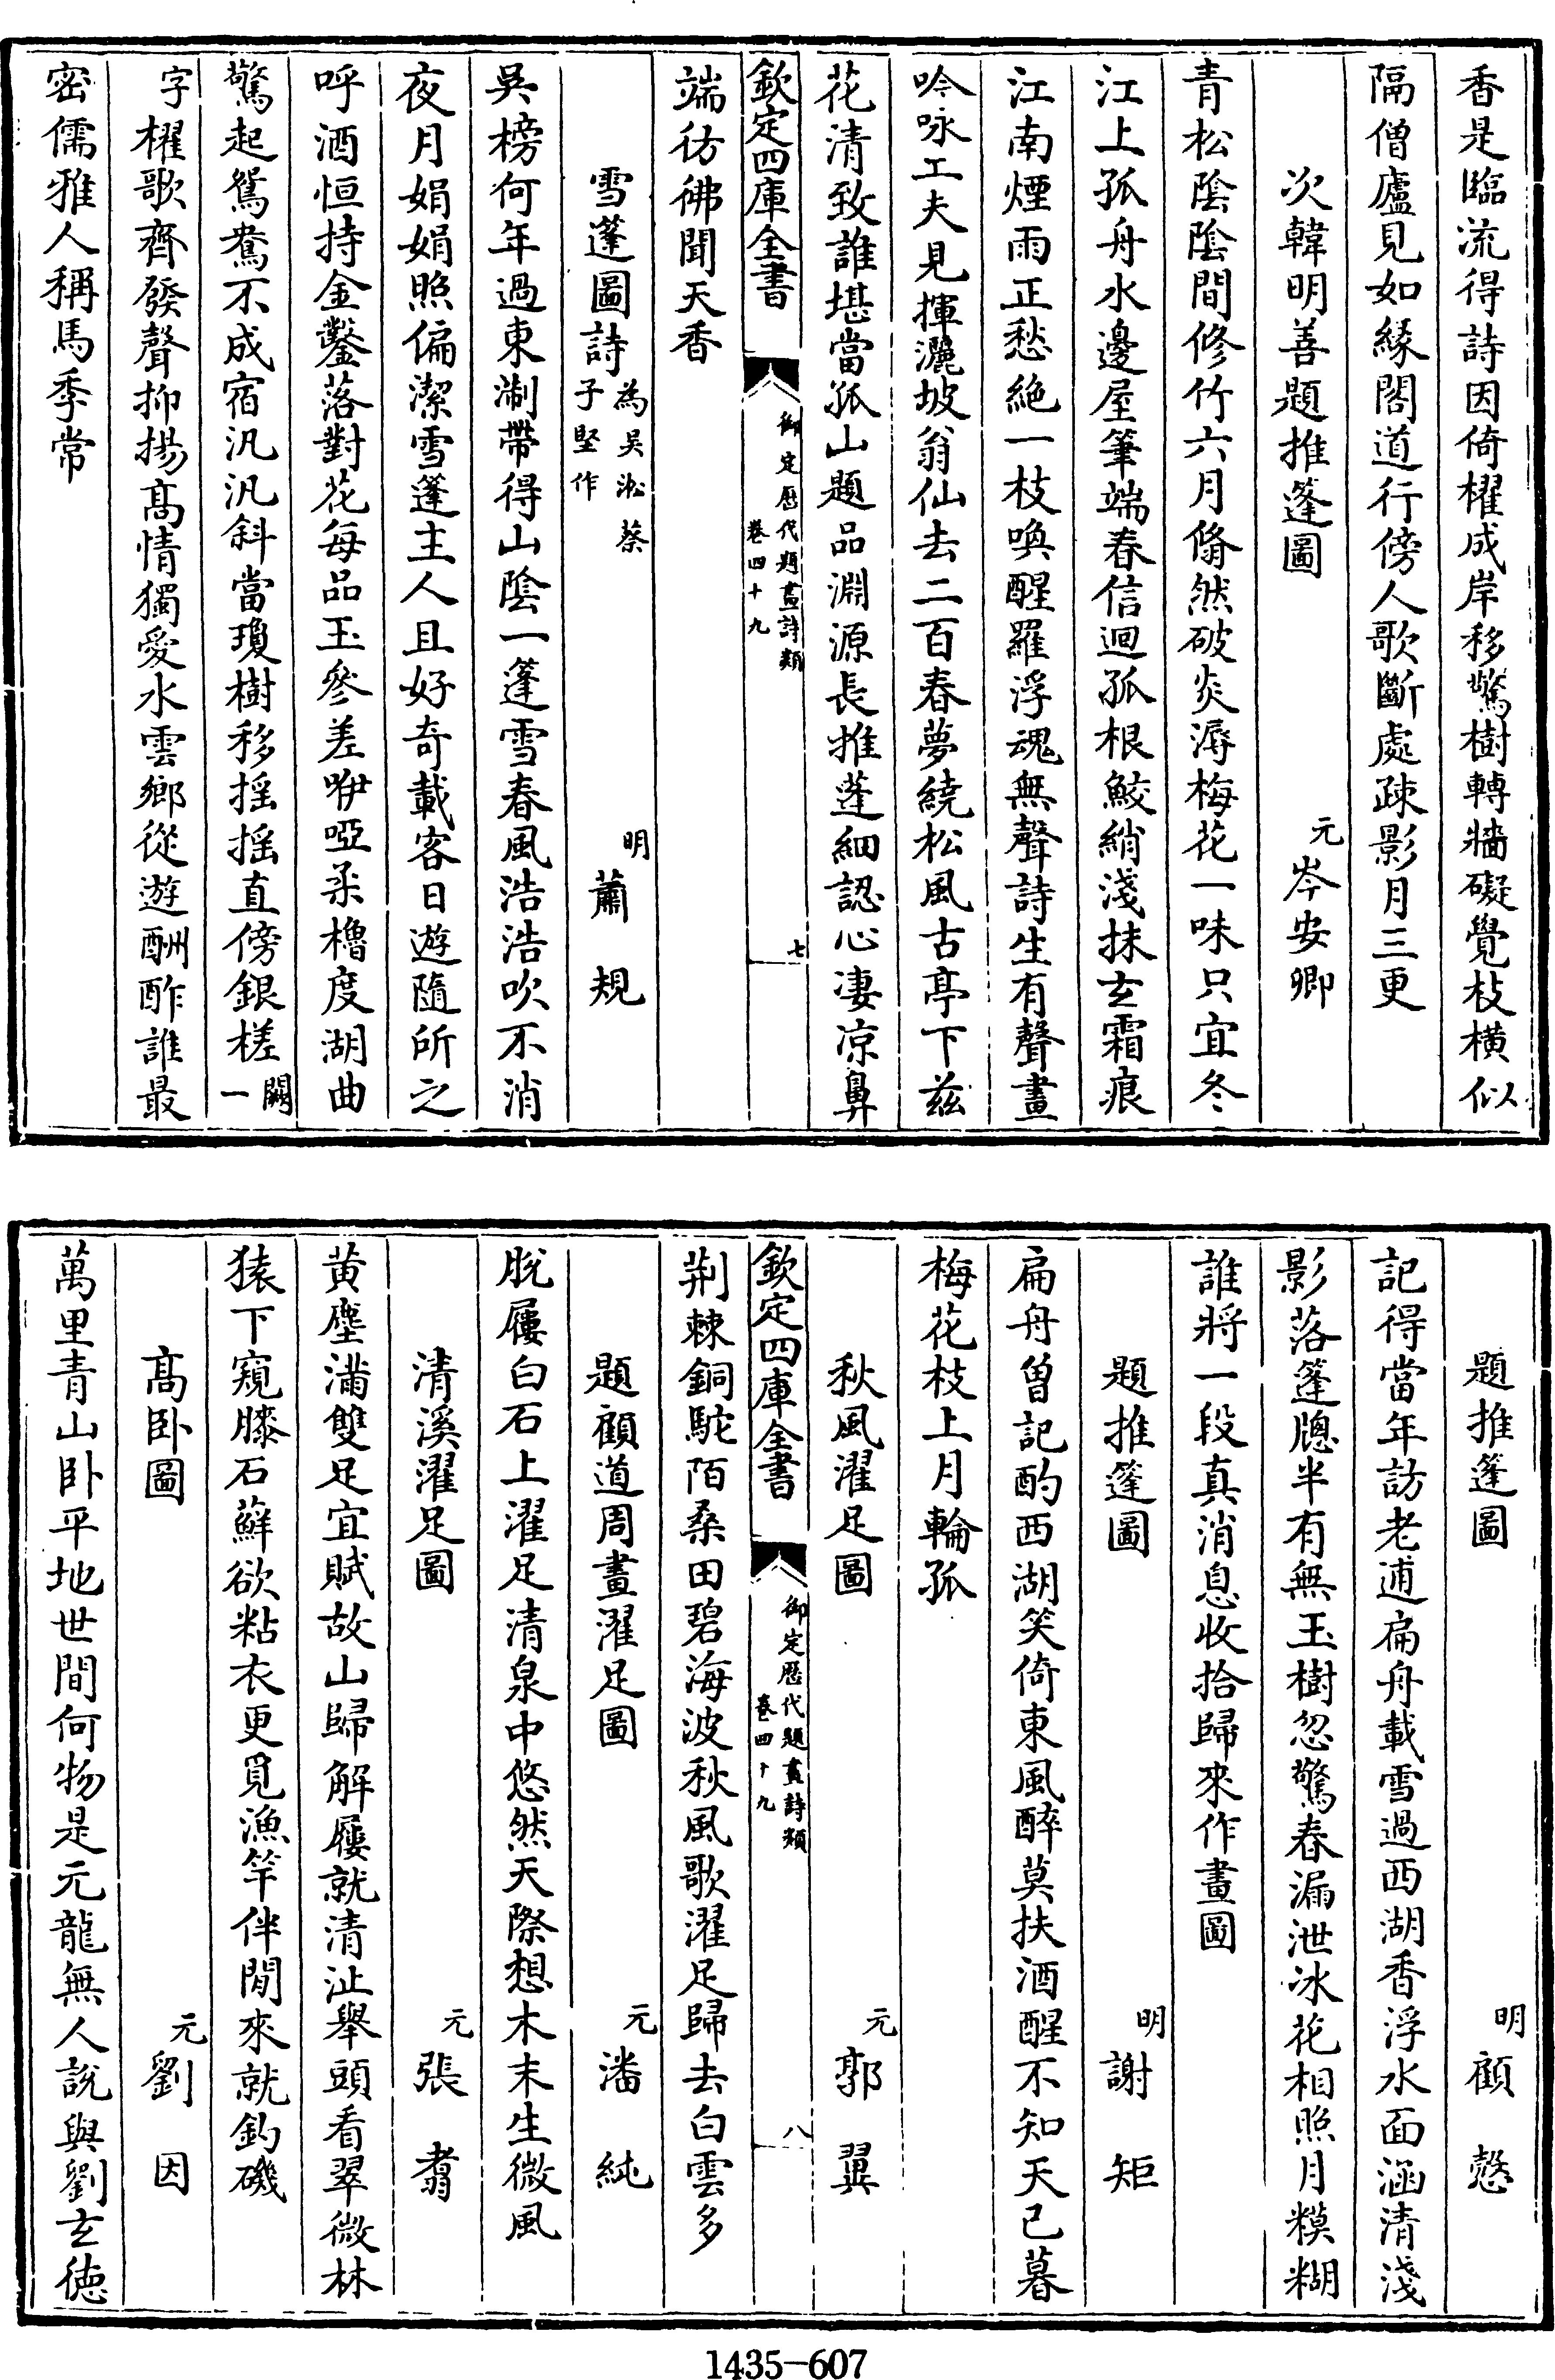 香是臨流得詩因倚櫂成岸移驚樹轉牆礙覺枝橫似
隔僧廬見如緣閣道行傍人歌斷處疎影月三更
次韓明善題推篷圖
元岑安卿
青松陰陰間修竹六月翛然破炎溽梅花一味只宜冬
江上孤舟水邊屋筆端春信迴孤根鮫綃淺抹玄霜痕
江南煙雨正愁絶一枝喚醒羅浮魂無聲詩生有聲畫
吟咏工夫見揮灑坡翁仙去二百春夢繞松風古亭下兹
花清致誰堪當孤山題品淵源長推蓬細認心凄凉鼻
欽定四庫全書
御定歷代題畫詩類
卷四十九
七
端彷彿聞天香
雪篷圖詩為吳淞蔡
子堅作
明蕭規
吳榜何年過東淛帶得山陰一篷雪春風浩浩吹不消
夜月娟娟照偏潔雪篷主人且好奇載客日遊隨所之
呼酒恒持金鑿落對花每品玉參差咿啞柔櫓度湖曲
驚起鴛鴦不成宿汎汎斜當瓊樹移搖搖直傍銀槎闕
一
字櫂歌齊發聲抑揚髙情獨愛水雲鄉從遊酬酢誰最
密儒雅人稱馬季常
題推篷圖
明顧愨
記得當年訪老逋扁舟載雪過西湖香浮水面涵清淺
影落篷牕半有無玉樹忽驚春漏泄冰花相照月糢糊
誰將一段真消息收拾歸來作畫圖
題推篷圖
明謝矩
扁舟曽記酌西湖笑倚東風醉莫扶酒醒不知天已暮
梅花枝上月輪孤
秋風濯足圖
元郭翼
欽定四庫全書
御定歷代題畫詩類
卷四十九
八
荆棘銅駝陌桑田碧海波秋風歌濯足歸去白雲多
題顧道周畫濯足圖
元潘純
脫屨白石上濯足清泉中悠然天際想木末生微風
清溪濯足圖
元張翥
黄塵滿雙足宜賦故山歸解屨就清沚舉頭看翠微林
猿下窺膝石蘚欲粘衣更覓漁竿伴閒來就釣磯
髙卧圖
元劉因
萬里青山卧平地世間何物是元龍無人說與劉玄徳
1435-607